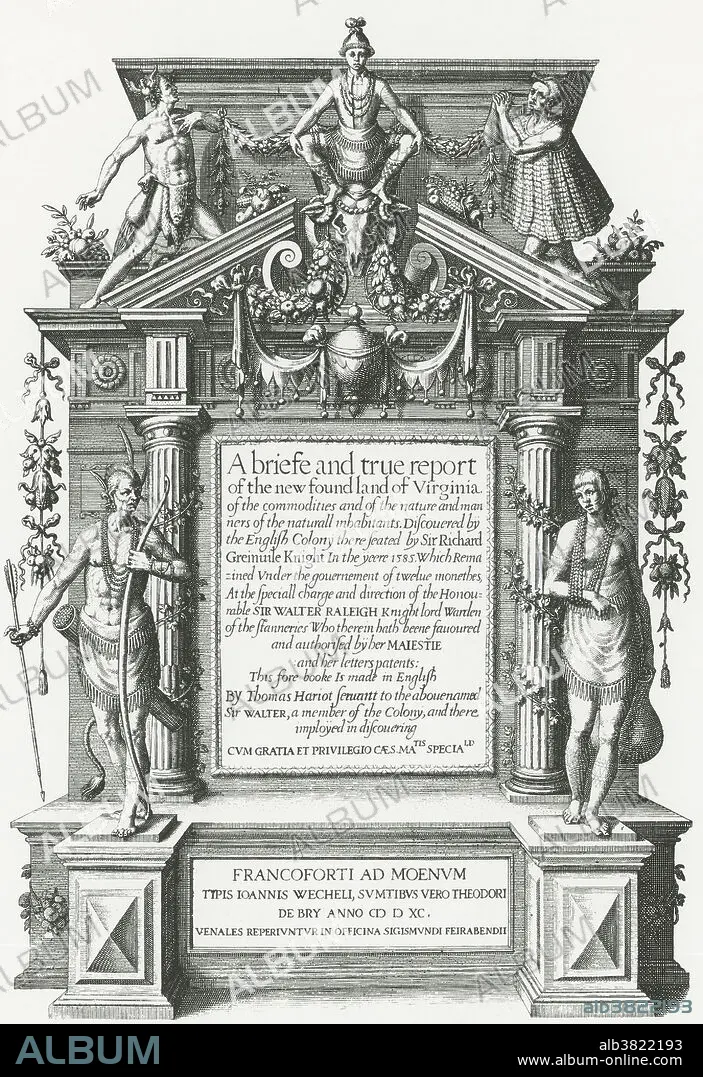 A briefe and true report
of the new found land of Virginia.
of the commodities and of the nature and man
ners of the naturall inhabitants. Diſcouered by
the Engliſh Colony there ſeated by Sir Richard
Greinuile Knight In the yeere 1585. Which Rema
=ined Vnder the gouernement of twelue monethes,
At the ſpeciall charge and direction of the Honou-
rable SIR WALTER RALEIGH Knight lord Warden
of the ſtanneries Who therein hath beene fauoured
and authoriſed by her MAIESTIE
and her letters patents:
This fore booke Is made in Engliſh
By Thomas Hariot ſeruant to the abouenamed
Sir WALTER, a member of the Colony, and there
imployed in diſcouering
CVM GRATIA ET PRIVILEGIO CÆS. MATIS SPECIALD
FRANCOFORTI AD MOENVM
TYPIS IOANNIS WECHELI, SVMTIBVS VERO THEODORI
DE BRY ANNO CIƆ IƆ XC.
VENALES REPERIVNTVR IN OFFICINA SIGISMVNDI FEIRABENDII
ALBUM
alb3822193
ALBUM
alb3822193
www.album-online.com